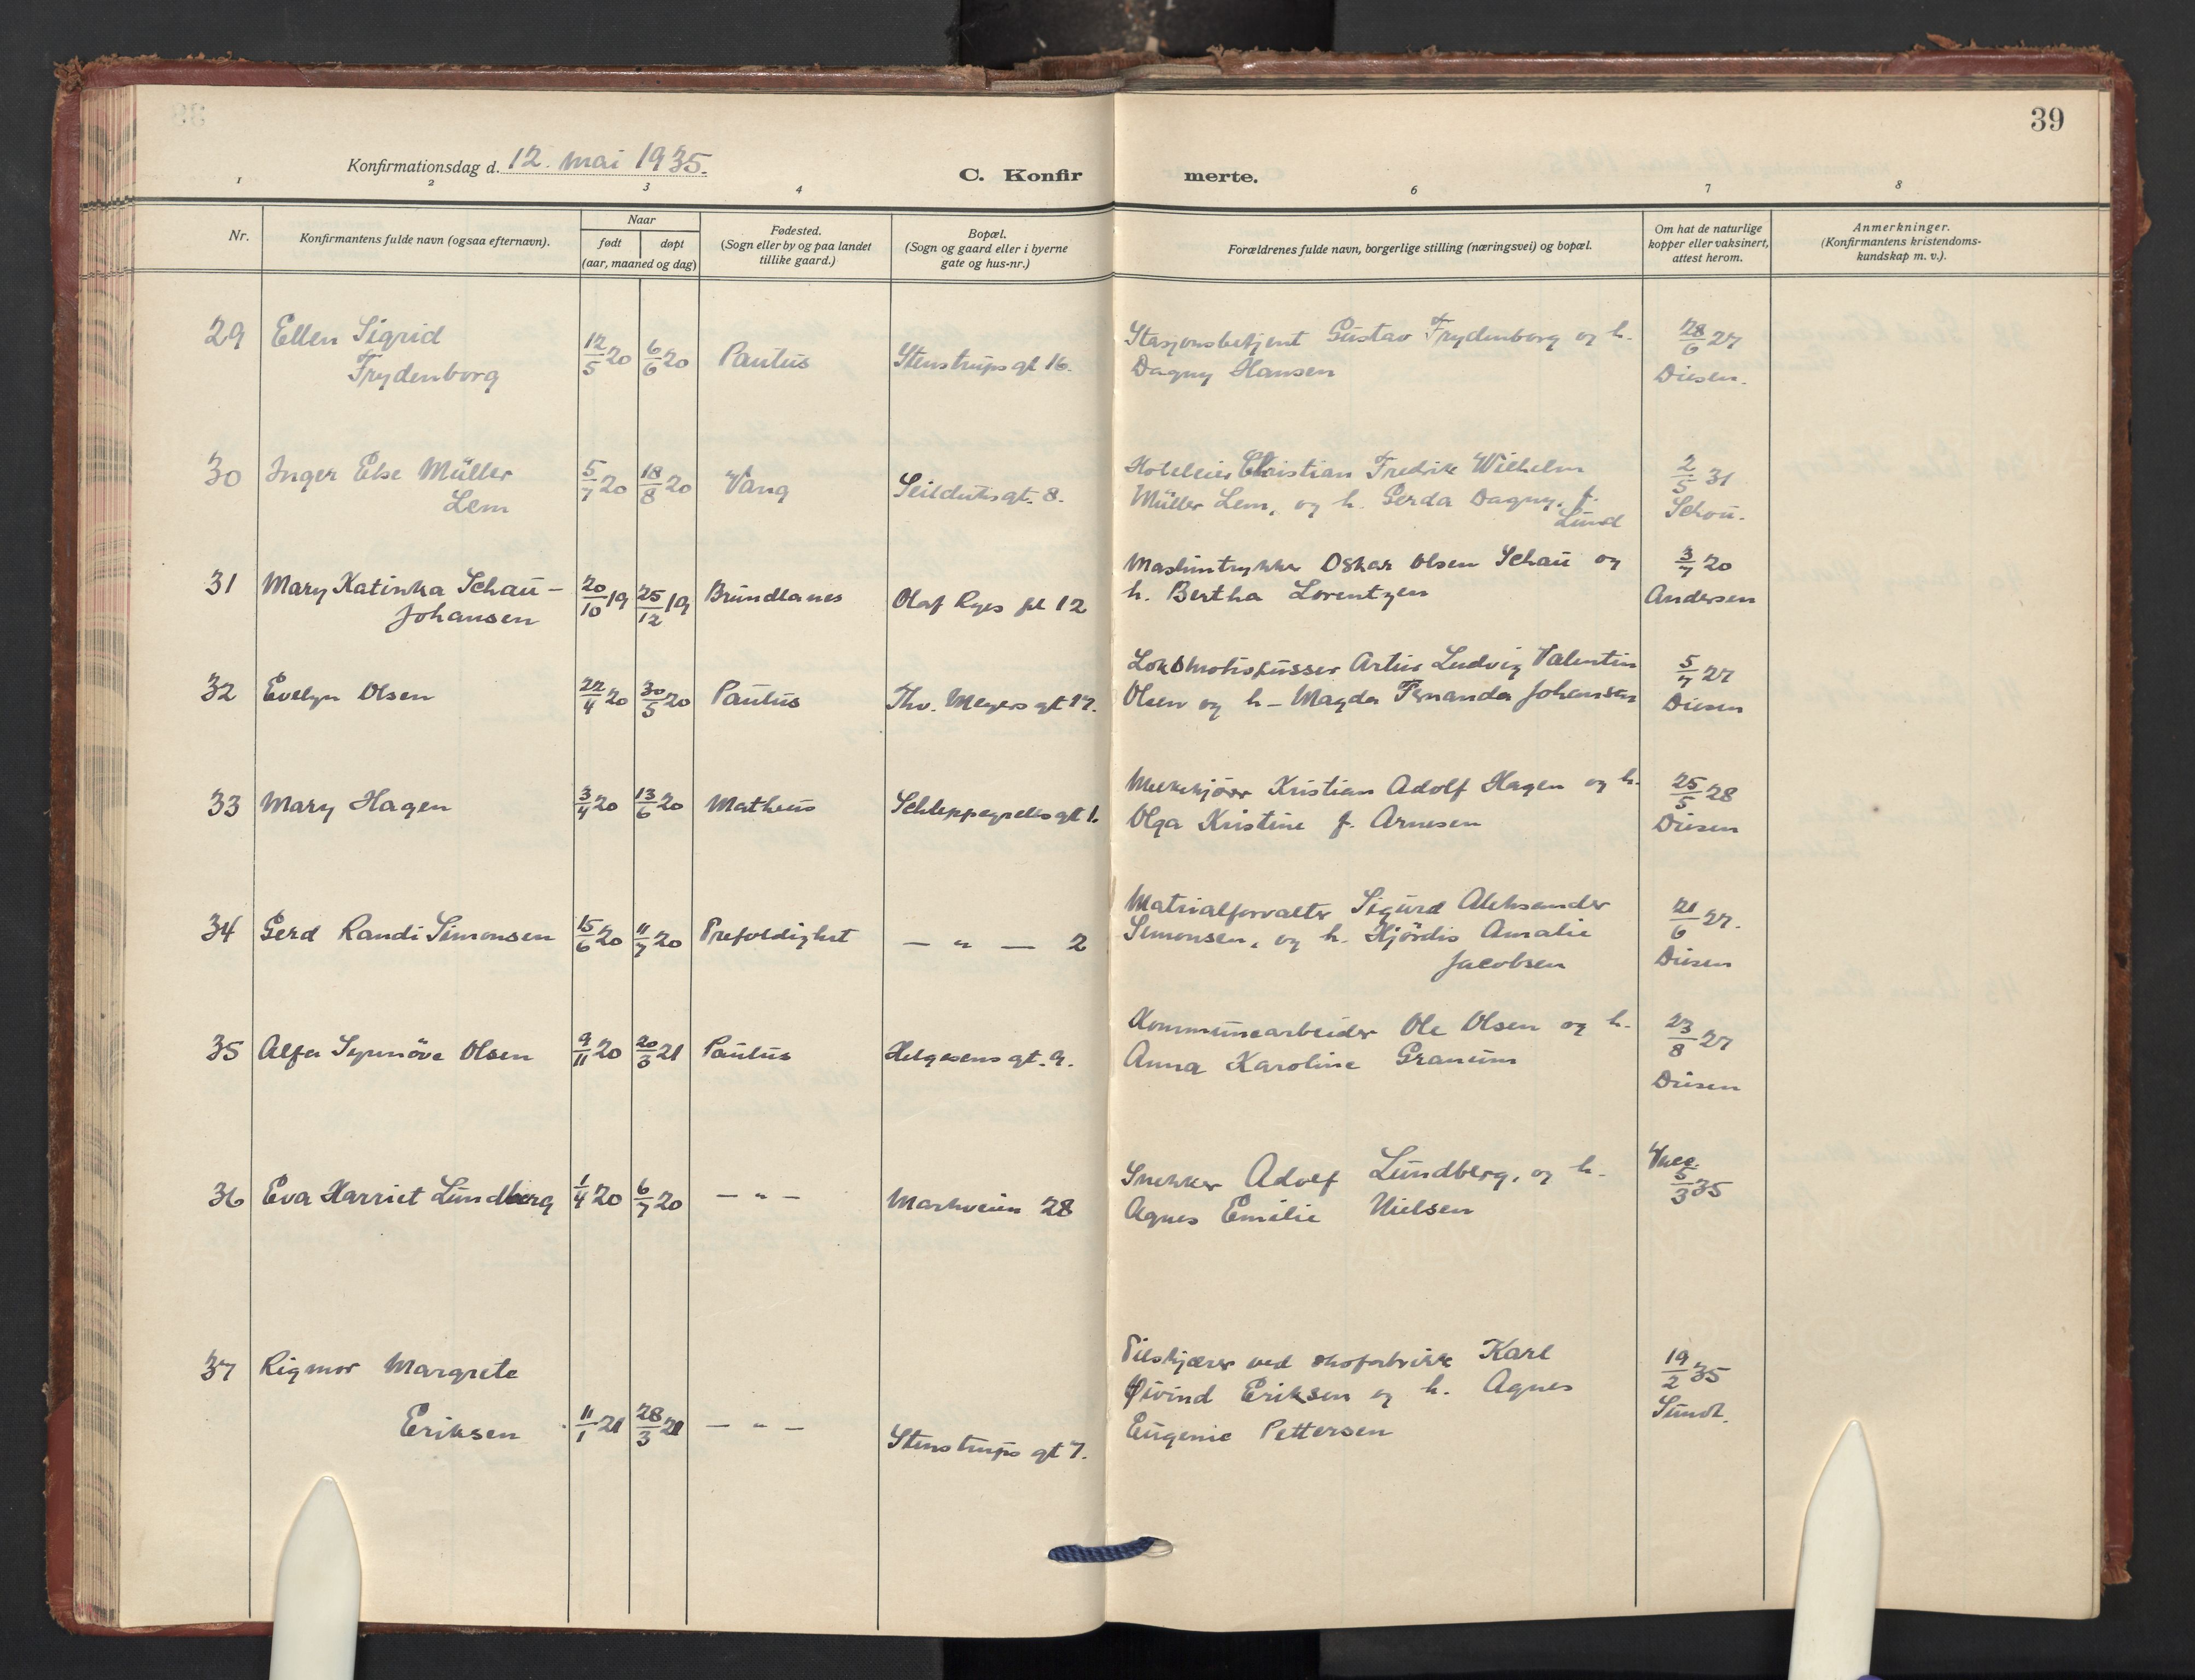 39
Konfirmationsdag d. 12. mai 1935.
C. Konfirmerte.
1 2 3 4 6 7 8
Nr.
Konfirmantens fulde navn (ogsaa efternavn).
Naar
født
døpt
(aar, maaned og dag)
Fødested.
(Sogn eller by og paa landet
tillike gaard.)
Bopæl.
(Sogn og gaard eller i byerne
gate og hus-nr.)
Forældrenes fulde navn, borgerlige stilling (næringsvei) og bopæl.
Om hat de naturlige
kopper eller vaksinert,
attest herom.
Anmerkninger.
(Konfirmantens kristendoms-
kundskap m. v.).
29 Ellen Sigrid
Frydenborg
12/5 20 6/6 20 Paulus Stenstrups gt 16.
Stasjonsbetjent Gustav Frydenborg og h.
Dagny Hansen
28/6 27
Diesen.
30 Inger Else Müller
Lem
5/7 20 18/8 20 Vang Seilduksgt. 8.
Hoteleier Christian Fredrik Wilhelm
Müller Lem, og h. Gerda Dagny, f.
Lund
2/5 31
Schou.
31 Mary Katinka Schau-
Johansen
20/10 19 25/12 19 Brunlanes Olaf Ryes pl 12
Maskintrykker Oskar Olsen Schau og
h. Bertha Lorentzen
3/7 20
Andersen
32 Evelyn Olsen
22/4 20 30/5 20 Paulus Thv. Meyers gt 17.
Lokomotivpusser Artur Ludvig Valentin
Olsen og h- Magda Fernanda Johansen
5/7 27
Diesen
33 Mary Hagen
3/4 20 13/6 20 Matheus Schleppegrells gt 1.
Melkekjører Kristian Adolf Hagen og h.
Olga Kristine f. Arnesen
25/5 28
Diesen
34 Gerd Randi Simonsen
15/6 20 11/7 20 Trefoldighet — " — 2
Matrialforvalter Sigurd Aleksander
Simonsen, og h. Hjördis Amalie
Jacobsen
21/6 27.
Diesen
35 Alfa Synnöve Olsen
9/11 20 20/3 21 Paulus Helgesens gt. 9.
Kommunearbeider Ole Olsen og h.
Anna Karoline Granum
23/8 27
Diesen
36 Eva Harriet Lundberg
1/4 20 6/7 20 — " — Markveien 28
Snekker Adolf Lundberg, og h.
Agnes Emilie Nielsen
5/3 35
37 Rigmor Margrete
Eriksen
11/1 21 28/3 21 — " — Stenstrups gt 7.
Tilskjærer ved skofabrikk Karl
Øivind Eriksen og h. Agnes
Eugenie Pettersen
19/2 35
Sundt.